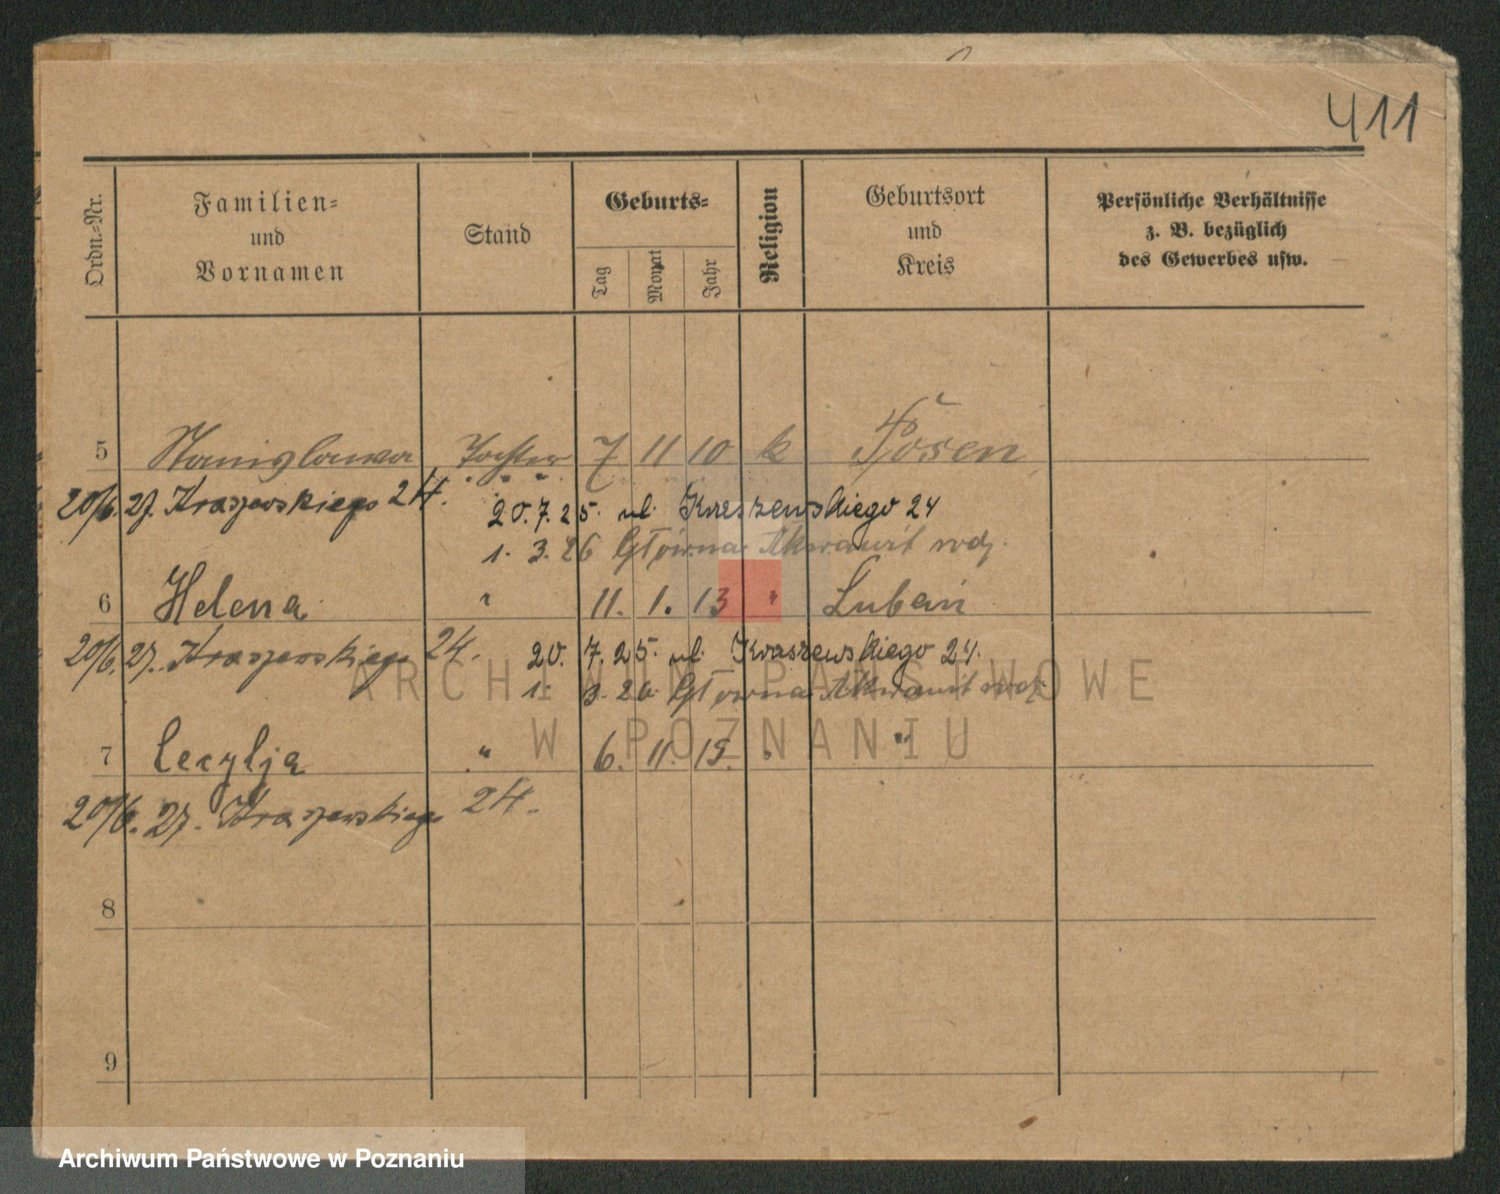 411
Ordn.-Nr.
Familien-
und
Vornamen
Stand
Geburts-
Tag
Monat
Jahr
Religion
Geburtsort
und
Kreis
Persönliche Verhältnisse
z. B. bezüglich
des Gewerbes usw.
5 Stanislawa Tochter 7 11 10 k Posen
20/6. 27. Kraszewskiego 24.
20.7.25. ul. Kraszewskiego 24
1. 3. 26 Główna Akwawit rodz.
6 Helena " 11. 1. 13 " Lubań
20/6. 27. Kraszewskiego 24.
20. 7. 25. ul. Kraszewskiego 24.
1. 3. 26. Główna Akwawit rodz.
7 Cecylja " 6. 11. 15. " "
20/6. 27. Kraszewskiego 24.
8
9
ARCHIWUM PAŃSTWOWE
W POZNANIU
Archiwum Państwowe w Poznaniu